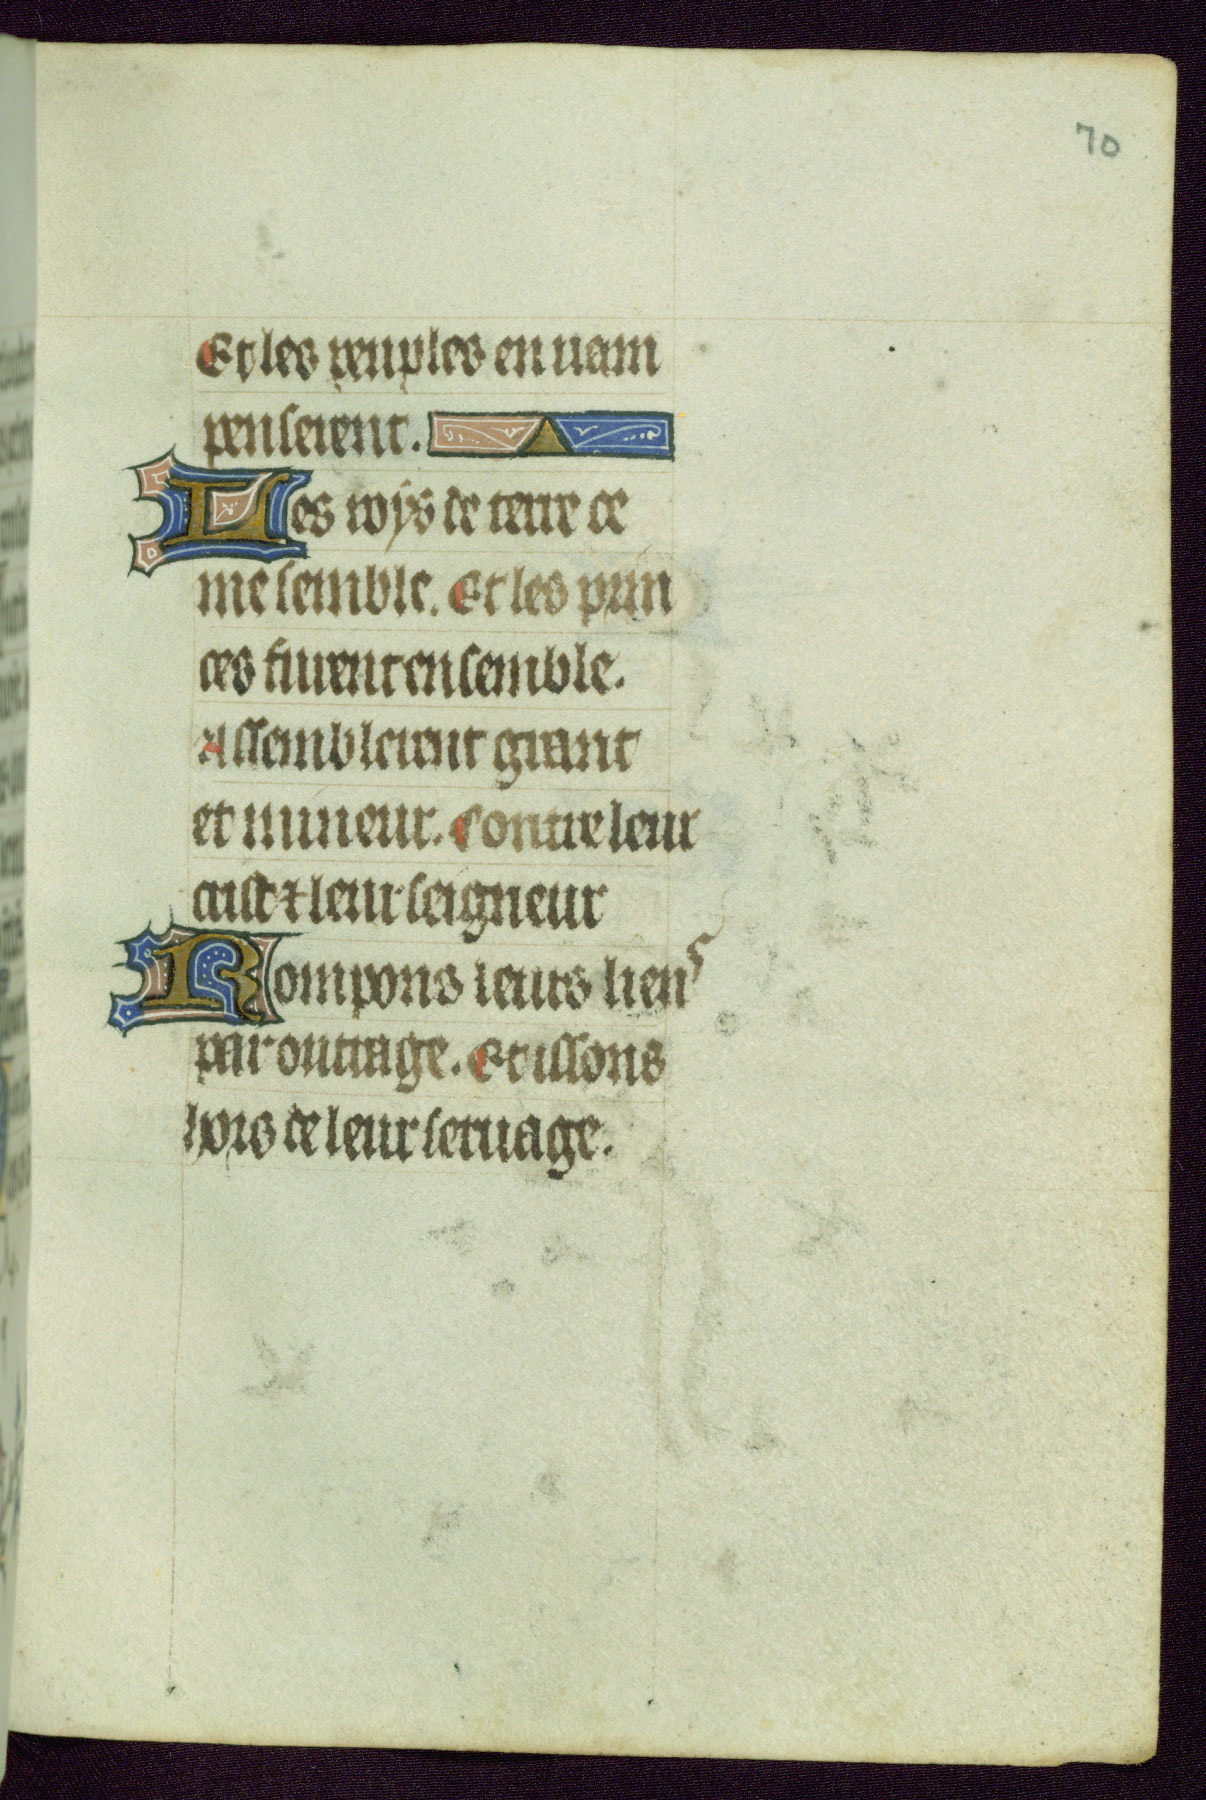 70
Et les peuples en uain
penserent.
Les roys de terre de
me semble. Et les prin
ces furent ensemble.
Assemblerent grant
et mineur. Contre leur
crist ⁊ leur seigneur
Rompons leurs liens
par outrage. Et issons
hors de leur seruage.